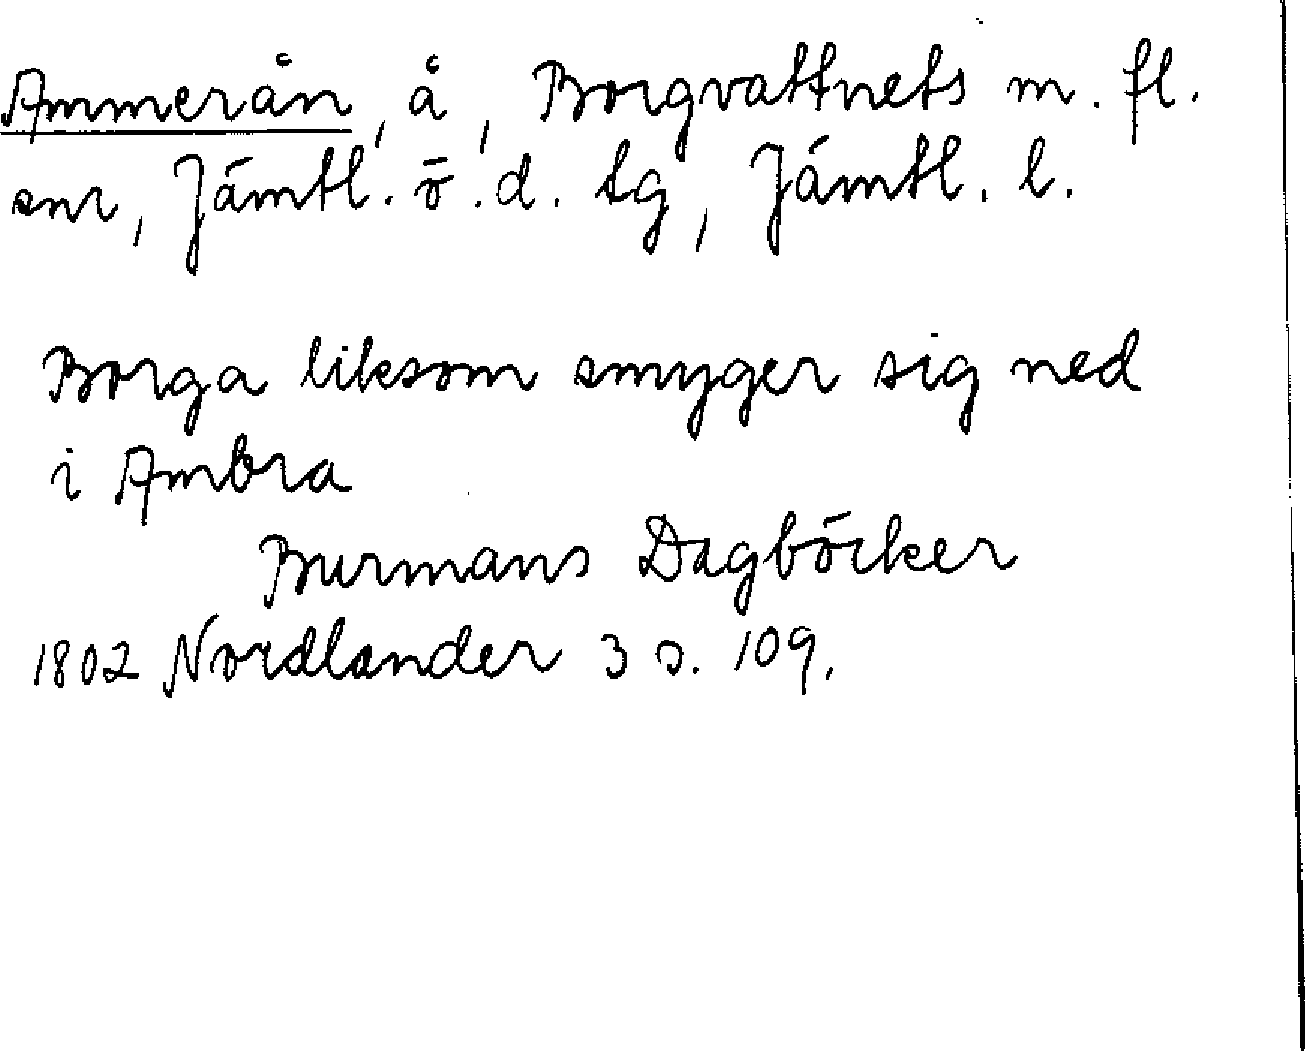 Ammerån, å, Borgvattnets m. fl.
snr, Jämtl. ö. d. tg, Jämtl. l.
Borga liksom smyger sig ned
i Ambra
Burmans Dagböcker
1802 Nordlander 3 s. 109.